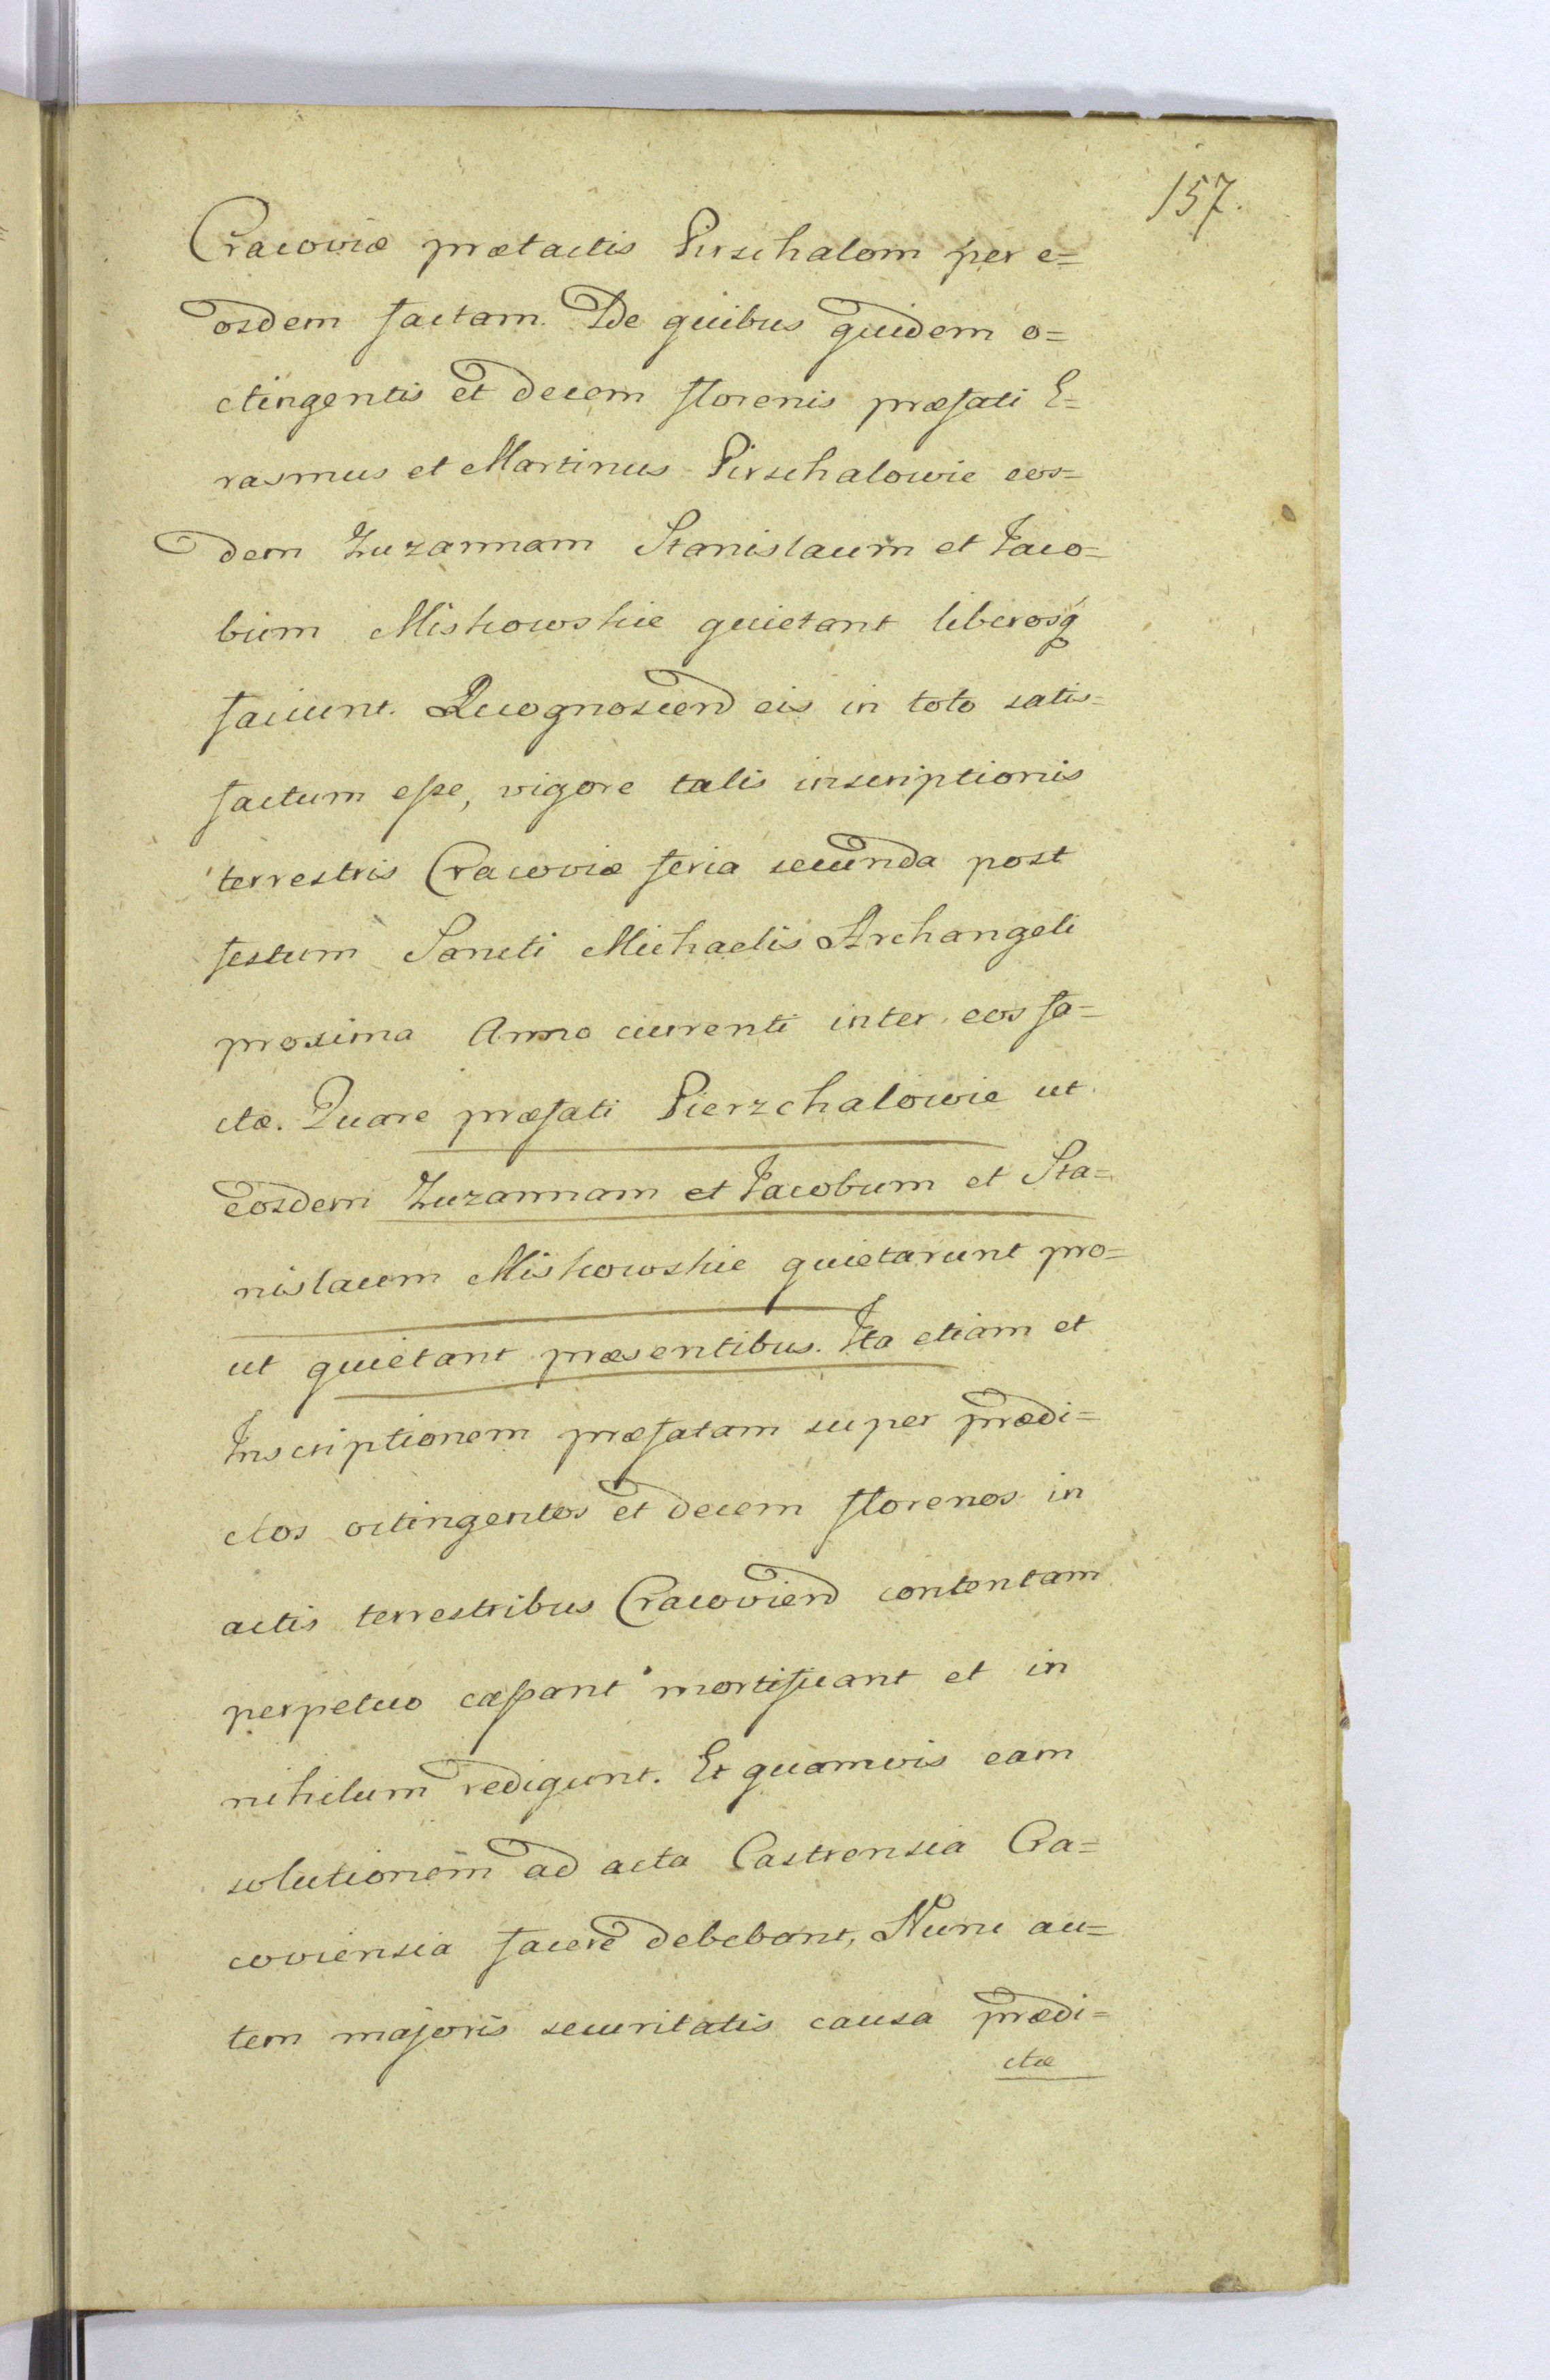 157.
Cracoviæ prætactis Pirschalom per e=
osdem factam. De quibus quidem o=
ctingentis et decem florenis præfati E=
rasmus et Martinus Pirschalowie eos=
dem Zuzannam Stanislaum et Jaco=
bum Miskowskie quietant liberosq
faciunt. Recognoscend eis in toto satis=
factum esse, vigore talis inscriptionis
terrestris Cracoviæ feria secunda post
festum Sancti Michaelis Archangeli
proxima Anno currenti inter eos fa=
ctæ. Quare præfati Pierzchalowie ut
eosdem Zuzannam et Jacobum et Sta=
nislaum Miskowskie quietarunt pro=
ut quietant præsentibus. Ita etiam et
Inscriptionem præfatam super prædi=
ctos octingentos et decem florenos in
actis terrestribus Cracoviend contentam
perpetuo cassant mortificant et in
nihilum redigunt. Et quamvis eam
solutionem ad acta Castrensia Cra=
coviensia facere debebant, Nunc au=
tem majoris securitatis causa prædi=
ctæ